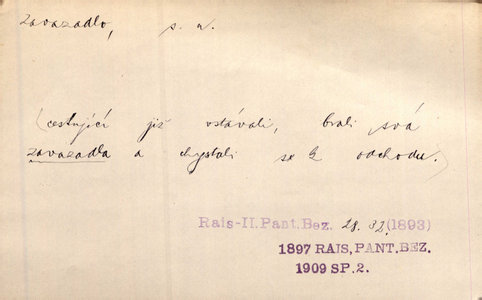 zavazadlo, s. n.
(cestující již vstávali, brali svá
zavazadla a chystali se k odchodu.)
Rais-II.Pant.Bez. 28.32.(1893)
1897 RAIS, PANT. BEZ.
1909 SP. 2.